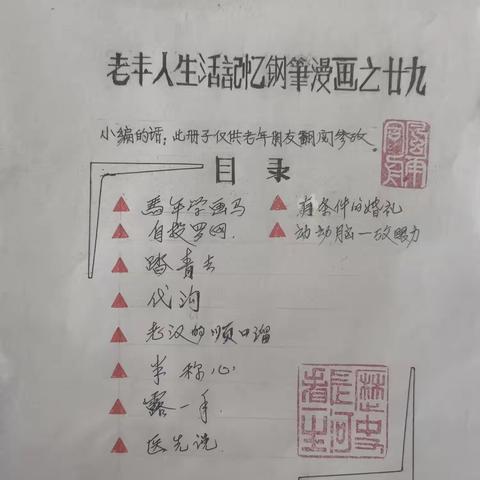 老丰人生活記忆钢筆漫画之廿九
小编的话:此册子仅供老年朋友翻阅参考。
目录
马年学画马
自投罗网.
踏青去
代沟
老汉的顺口溜
半称心
露一手
医先说
有条件的婚礼
动动脑一考眼力